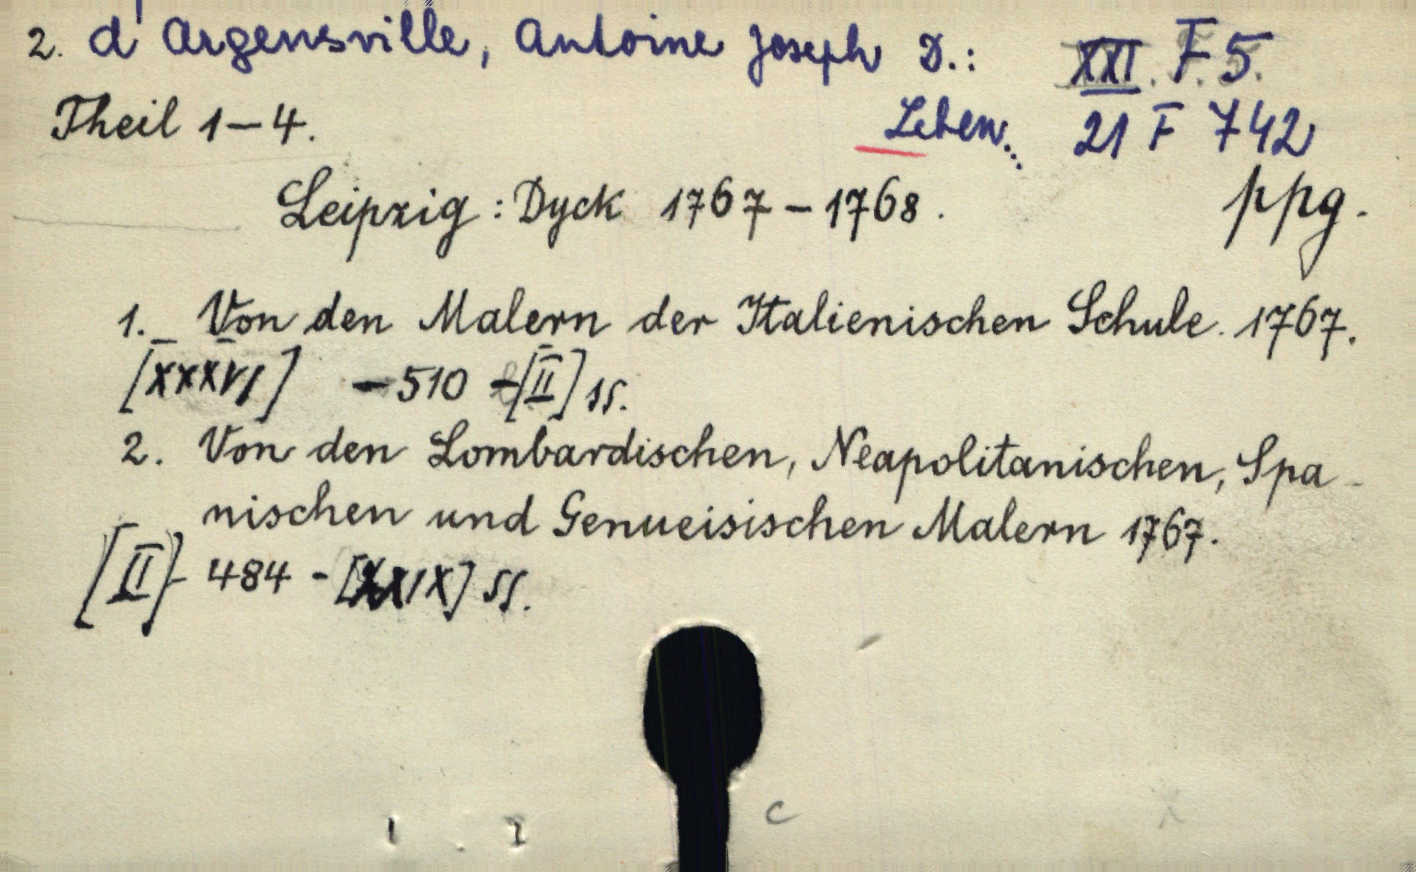 2. d'Argensville, Antoine Joseph D.: XXI. F. 5.
Theil 1-4. Leben... 21 F 742
Leipzig: Dyck 1767-1768. ppg.
1. Von den Malern der Italienischen Schule. 1767.
[XXXVI] - 510 - [II] SS.
2. Von den Lombardischen, Neapolitanischen, Spa-
nischen und Genueisischen Malern 1767.
[II] - 484 - [XXIX] SS.
c